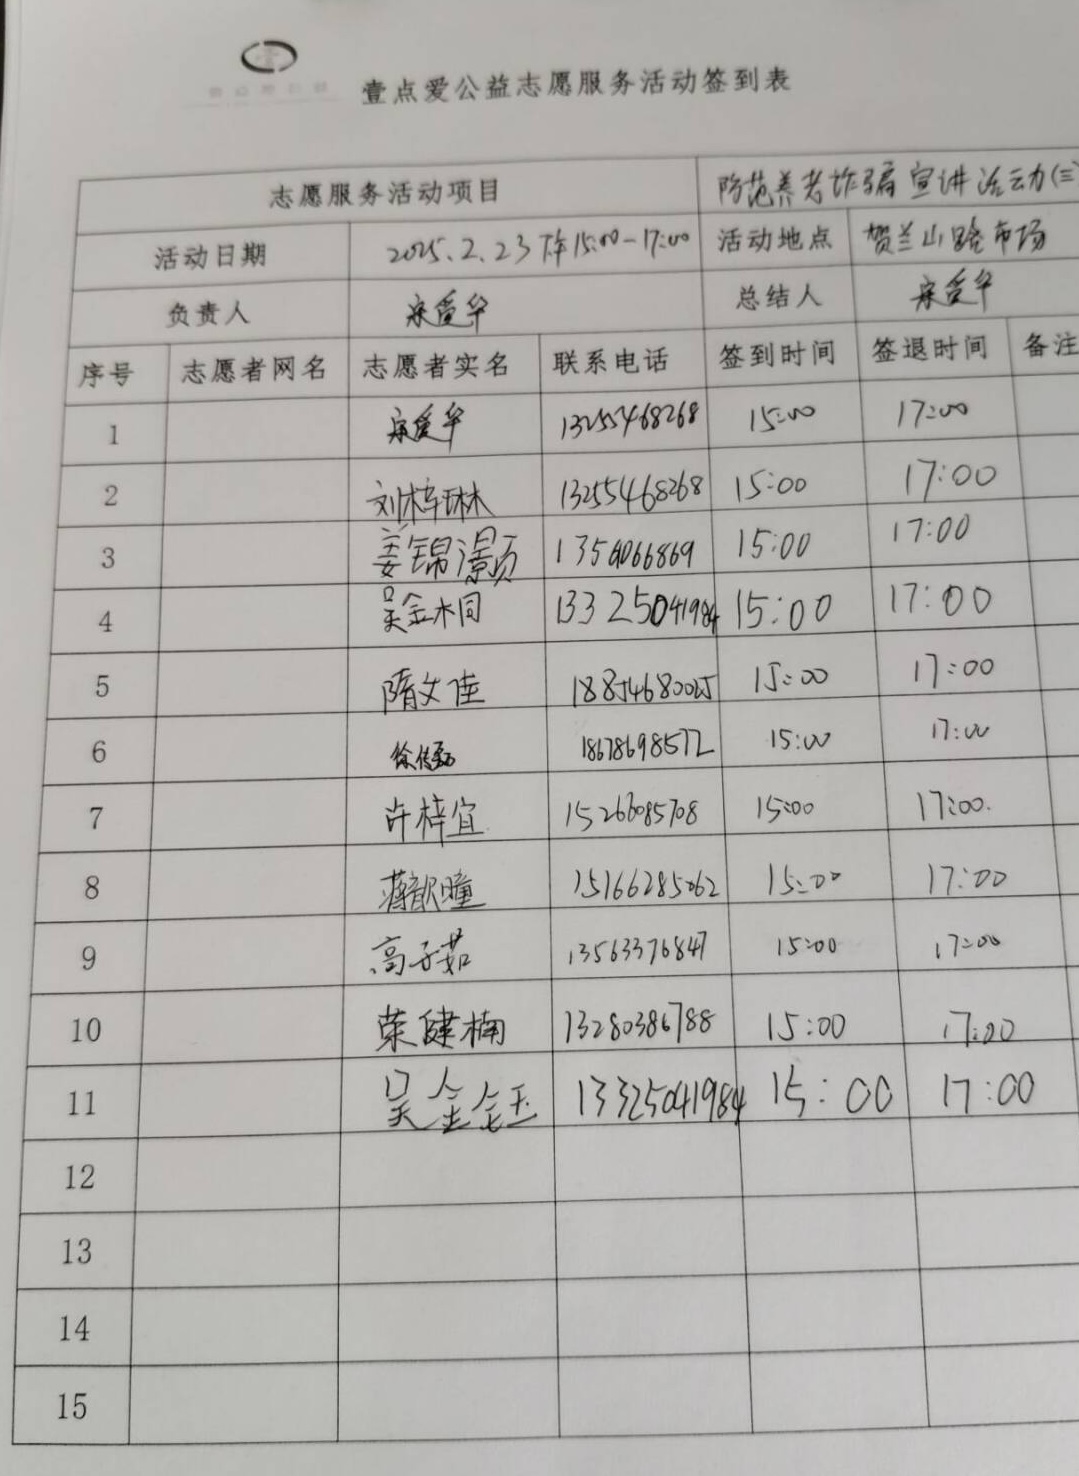 壹点爱公益志愿服务活动签到表
志愿服务活动项目 防范养老诈骗宣讲活动(三)
活动日期 2025.2.23下午15:00-17:00 活动地点 贺兰山路市场
负责人 宋爱华 总结人 宋爱华
序号 志愿者网名 志愿者实名 联系电话 签到时间 签退时间 备注
1 宋爱华 13255468268 15:00 17:00
2 刘梓琳 13255468268 15:00 17:00
3 姜锦灏 15:00 17:00
4 吴金桐 13325041984 15:00 17:00
5 隋文佳 18854680025 15:00 17:00
6 徐传 18678698572 15:00 17:00
7 许梓宜 15266085708 15:00 17:00.
8 蒋歆瞳 15166285062 15:00 17:00
9 高子茹 13563376847 15:00 17:00
10 荣健楠 13280386788 15:00 17:00
11 吴金钰 13325041984 15:00 17:00
12
13
14
15